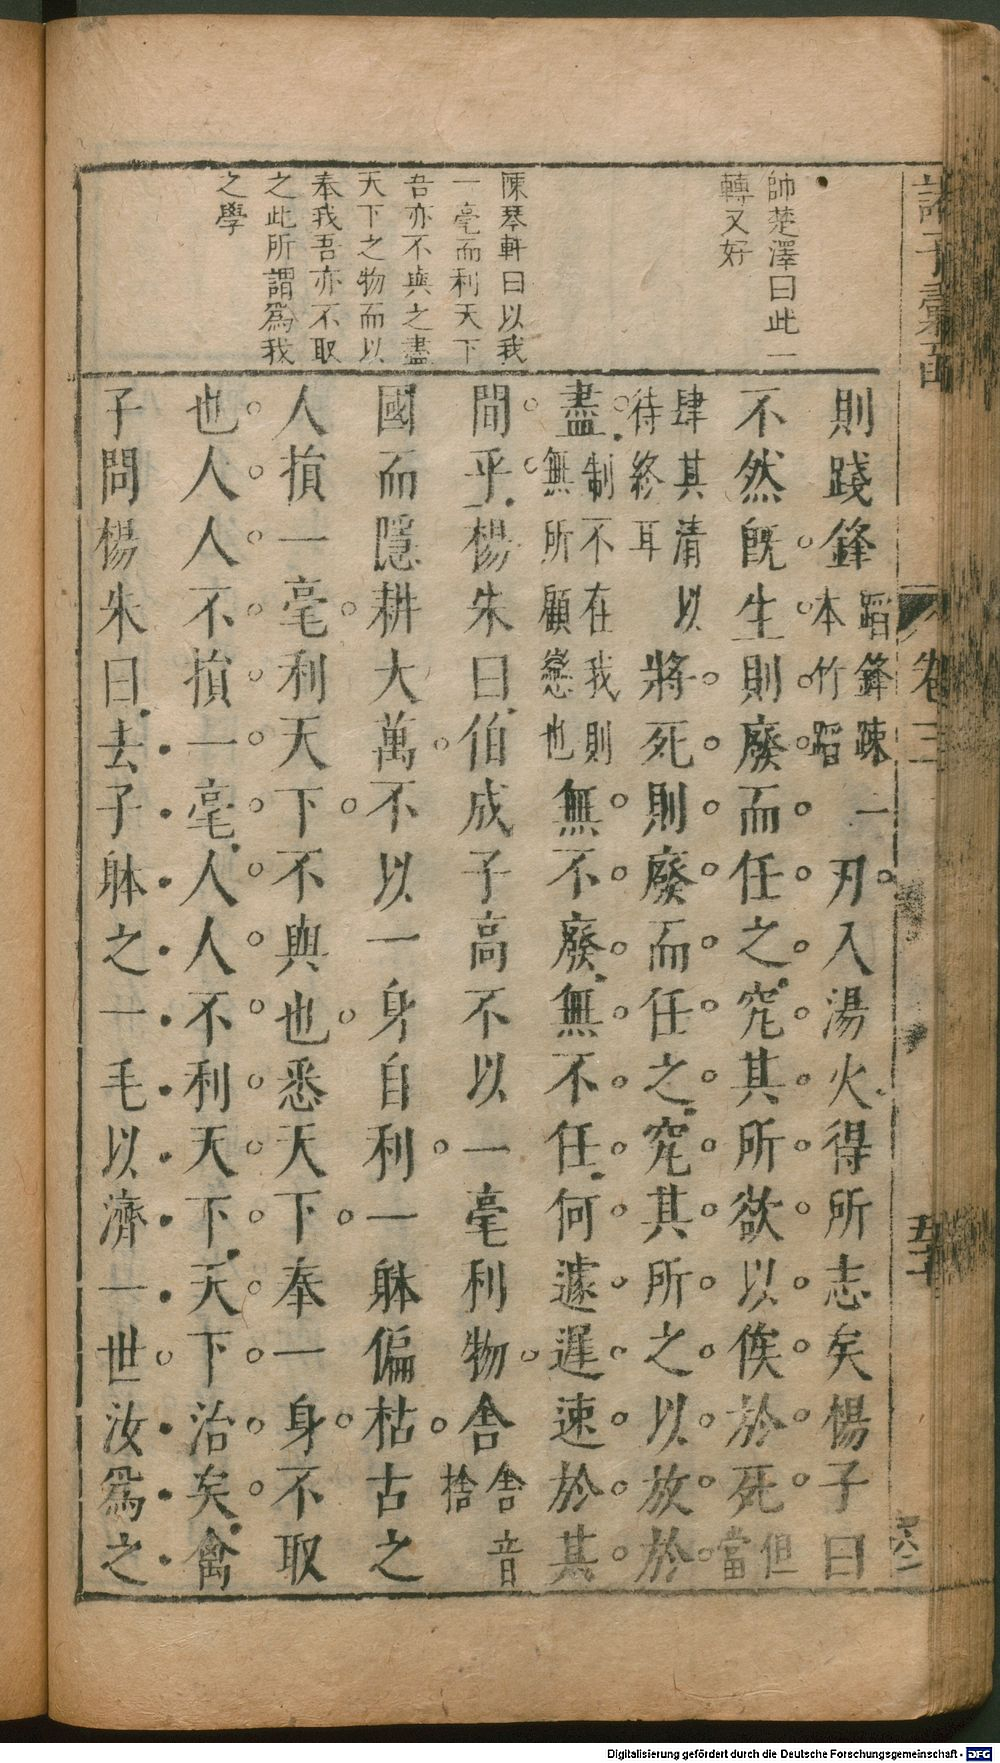 諸子彙函
卷三
師楚澤曰此一
轉又好
陳琴軒曰以我
一毫而利天下
吾亦不與之盡
天下之物而以
奉我吾亦不取
之此所謂爲我
之學
則踐鋒蹈鋒疎本竹蹈一刃入湯火得所志矣楊子曰
不然旣生則廢而任之究其所欲以俟於死但當
肆其清以待終耳將死則廢而任之究其所之以放於
盡制不在我則無所顧戀也無不廢無不任何遽遲速於其
間乎楊朱曰伯成子高不以一毫利物舍舍音捨
國而隱耕大萬不以一身自利一躰偏枯古之
人損一毫利天下不與也悉天下奉一身不取
也人人不損一毫人人不利天下天下治矣禽
子問楊朱曰去子躰之一毛以濟一世汝爲之
Digitalisierung gefördert durch die Deutsche Forschungsgemeinschaft - DFG